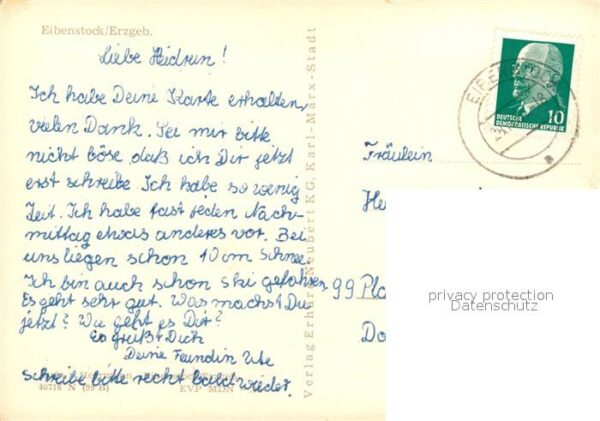 Eibenstock/Erzgeb.
Liebe Heidrun!
Ich habe Deine Karte erhalten,
vielen Dank. Sei mir bitte
nicht böse daß ich Dir jetzt
erst schreibe. Ich habe so wenig
Zeit. Ich habe fast jeden Nach-
mittag etwas anderes vor. Bei
uns liegen schon 10 cm Schnee.
Ich bin auch schon Ski gefahren
Es geht sehr gut. Was machst Du
jetzt? Wie geht es Dir?
Es grüßt Dich
Deine Feundin Ute
schreibe bitte recht bald wieder.
40716 N (39 B) EVP MDN
Verlag Erhard Neubert KG, Karl-Marx-Stadt
10
DEUTSCHE
DEMOKRATISCHE REPUBLIK
Fräulein
He
99 Pla
Do
privacy protection
Datenschutz